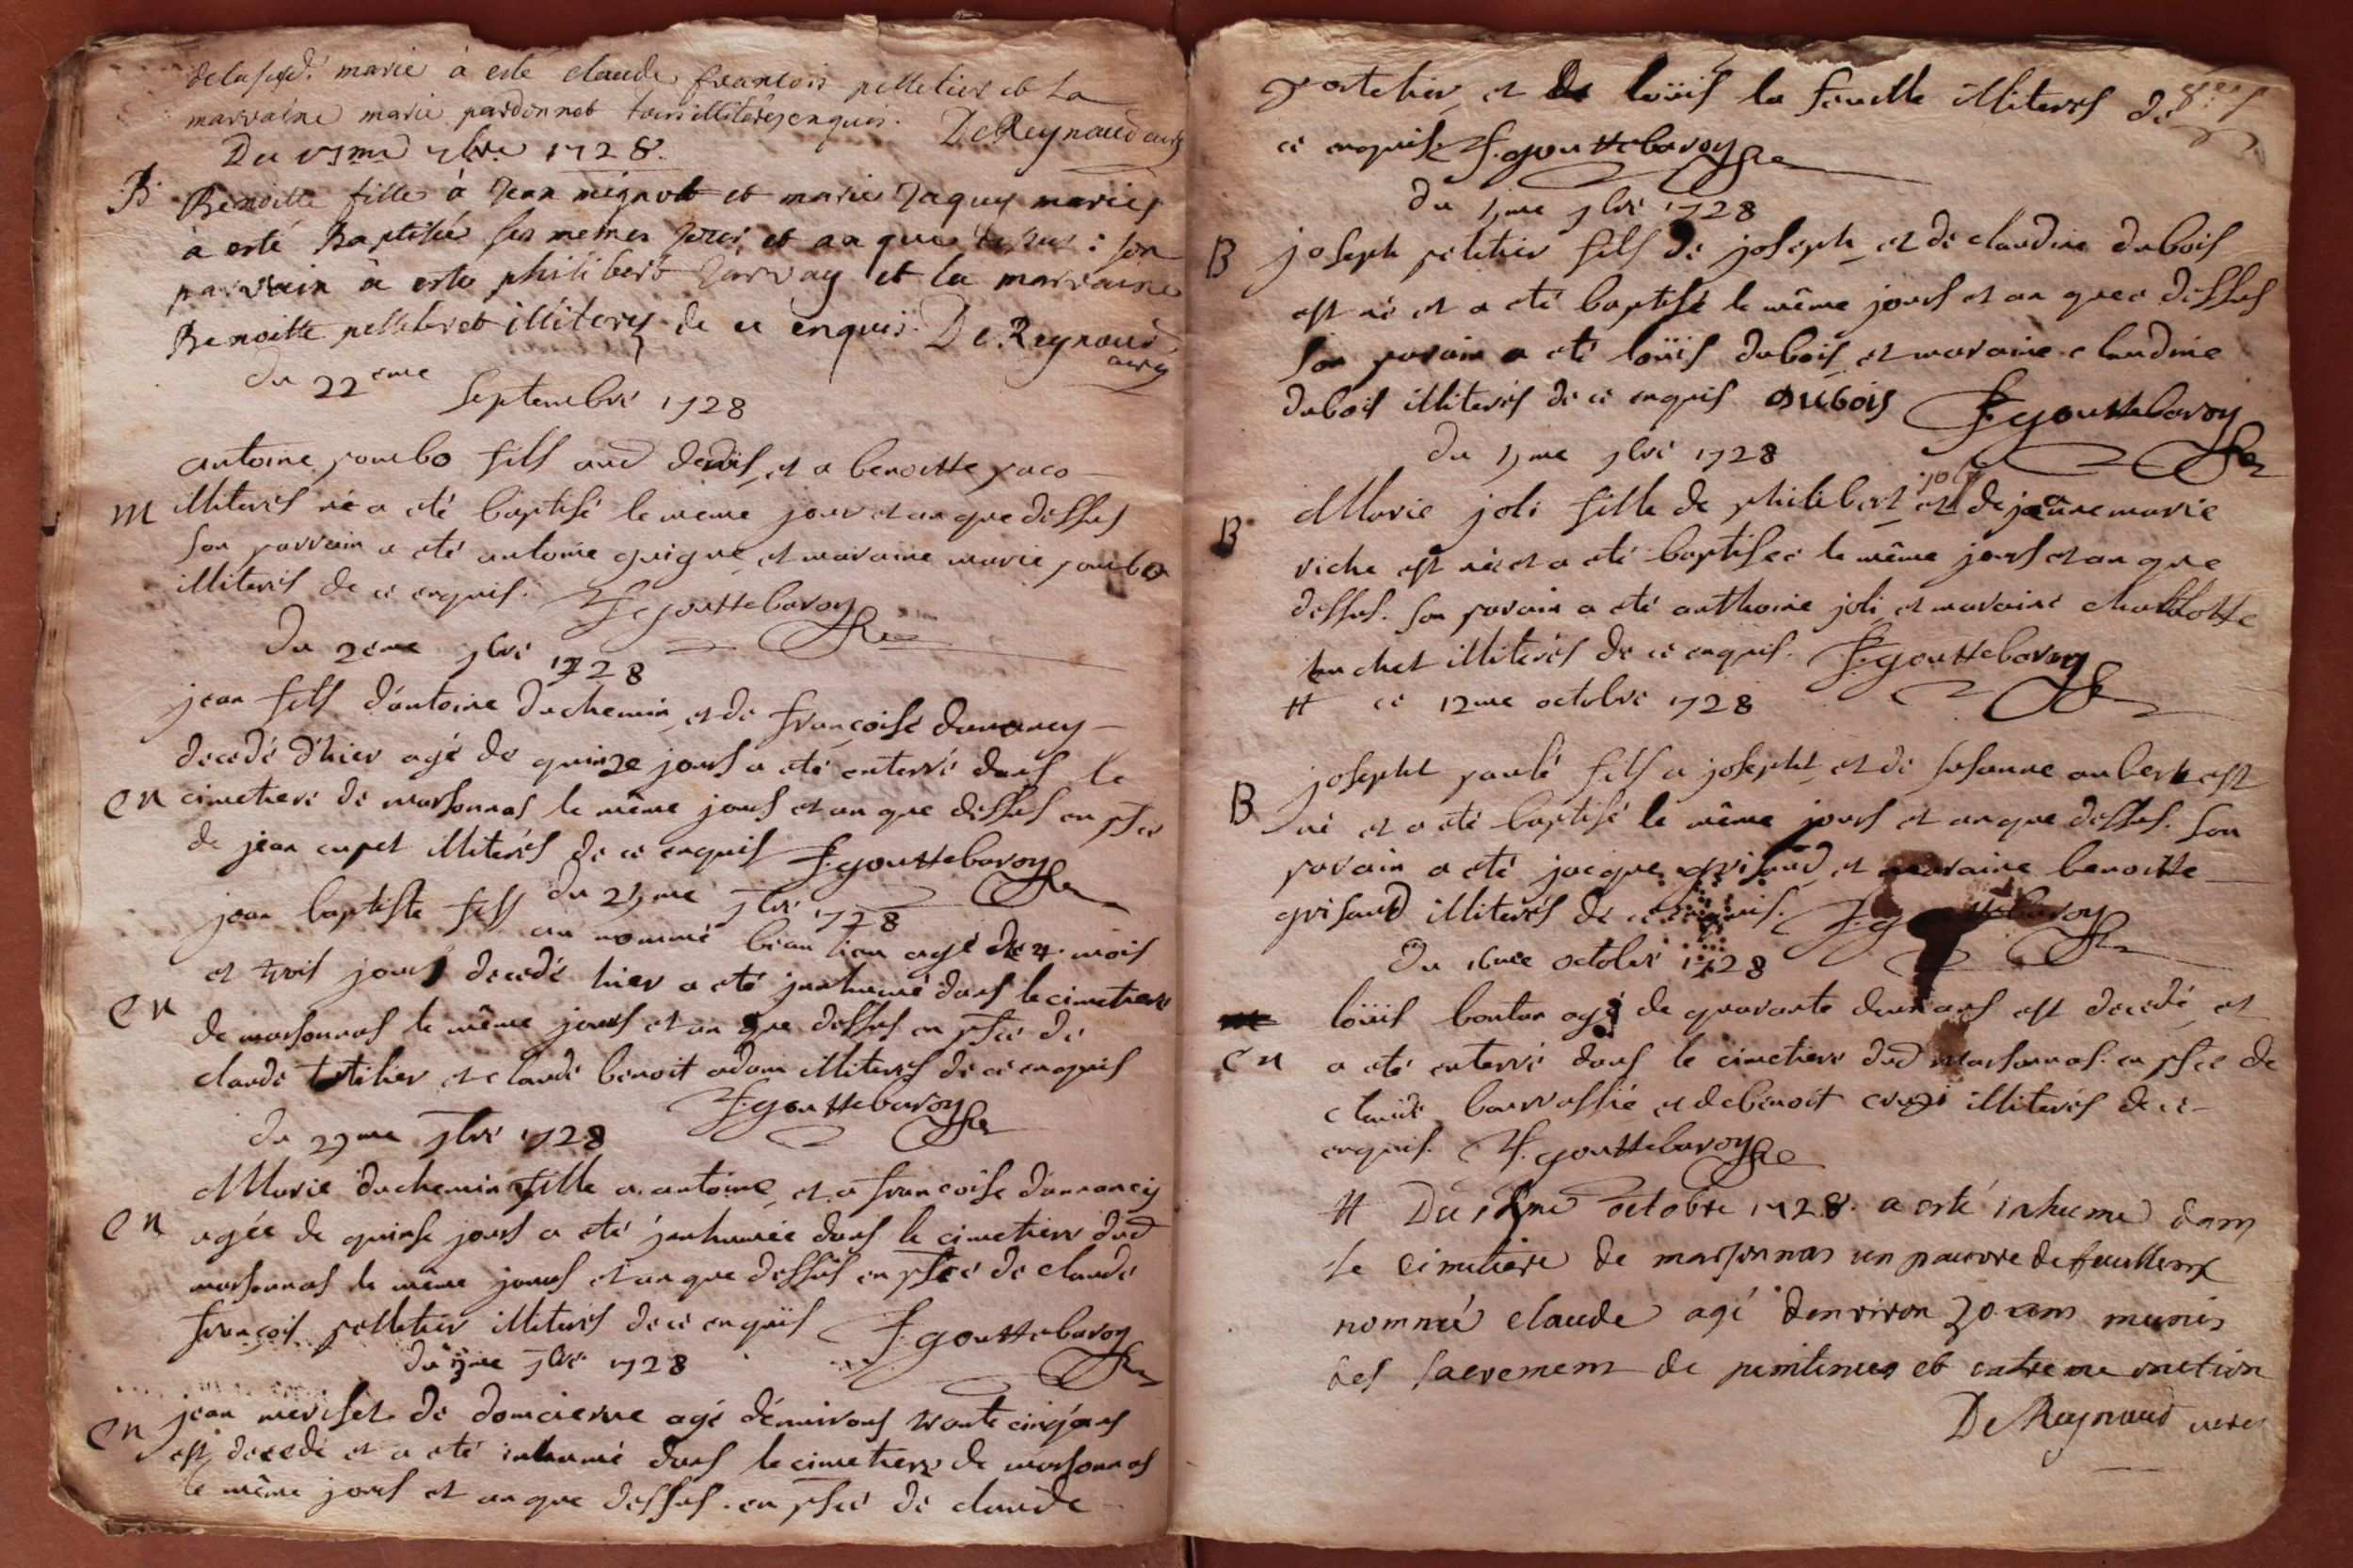 marie à este claude françois pelletier et La
marraine marie pardonnet tous illiteres enquis. DeReynaud curé
Du 7bre 1728.
B. Benoitte fille à Jean mignot et marie Jaquy mariés
à esté Baptisée les memes jour et an que dessus : son
parrain à este philibert et la marraine
Benoitte illiteres de ce enquis. De Reynaud
curé
du 22eme Septembre 1728
antoine pombo fils aud denis, et a benoitte paco
m illiterés né a eté baptisé le meme jour et an que dessus
son parrain a eté antoine guigue, et maraine marie pombo
illiterés de ce enquis. F. gouttebaroy
du 7bre 1728
jean fils d'antoine duchemin, et de françoise
decedé d'hier agé de quinze jours a eté enterré dans le
en cimetiere de marsonnas le même jours et an que dessus en psce
de jean cupet illiterés de ce enquis F. gouttebaroy
du 7bre 1728
jean baptiste fils au nommé agé de 4 mois
et trois jours decedé hier a eté dans le cimetiere
en de marsonnas le même jours et an que dessus en psce de
claude et claude benoit adam illiterés de ce enquis
F. gouttebaroy
du 7bre 1728
Marie duchemin fille a antoine, et a françoise
en agée de quinse jours a eté dans le cimetiere dud
marsonnas le même jours et an que dessus en psce de claude
françois pelletier illiterés de ce enquis F. gouttebaroy
du 7bre 1728
en jean de agé trante cinq ans
est decedé et a eté inhumé dans le cimetiere de marsonnas
le même jours et an que dessus. en psce de claude
et de loüis la feuille illiterés de
ce enquis F. gouttebaroy
du 7bre 1728
B joseph peletier fils de joseph, et de claudine dubois
est né et a eté baptisé le même jours et an que dessus
son parain a eté loüis dubois, et maraine claudine
dubois illiterés de ce enquis Dubois F. gouttebaroy
du 7bre 1728
joly
B Marie joli fille de philibert et de jeanne marie
riche est née et a eté baptisée le même jours et an que
dessus. son parain a eté anthoine joli, et maraine charlotte
illiterés de ce enquis. F. gouttebaroy
# ce 12me octobre 1728
B josepht paulé fils a josepht, et de susanne aubert est
né et a eté baptisé le même jours et an que dessus. son
parain a eté jacque grisaud, et maraine benoitte
grisaud illiterés de ce enquis. F. gouttebaroy
du 16me octobre 1728
loüis bouton agé de quarante deux ans est decedé, et
en a eté enterré dans le cimetiere dud marsonnas. en psce de
claude, et de benoit illiterés de ce
enquis. F. gouttebaroy
# Du octobre 1728. a esté inhumé dans
le cimetiere de marsonnas un pauvre de
nommé claude agé denviron ans munis
des sacrement de penitences et extreme onction
De Reynaud curé